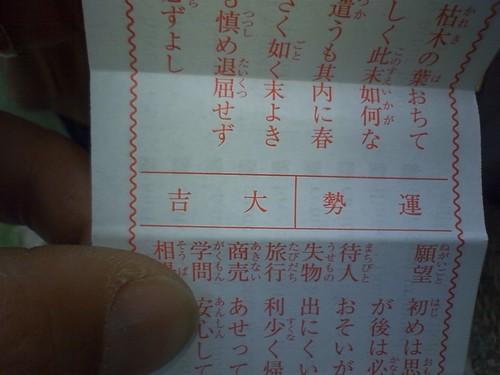 枯木の葉おちて
しく此末如何な
遣うも其内に春
さく如く末よき
も慎め退屈せず
ずよし
運勢 大吉
願望 初めは思
が後は必
待人 おそいが
失物 出にくい
旅行 利少く帰
商売 あせって
学問 安心して
相場